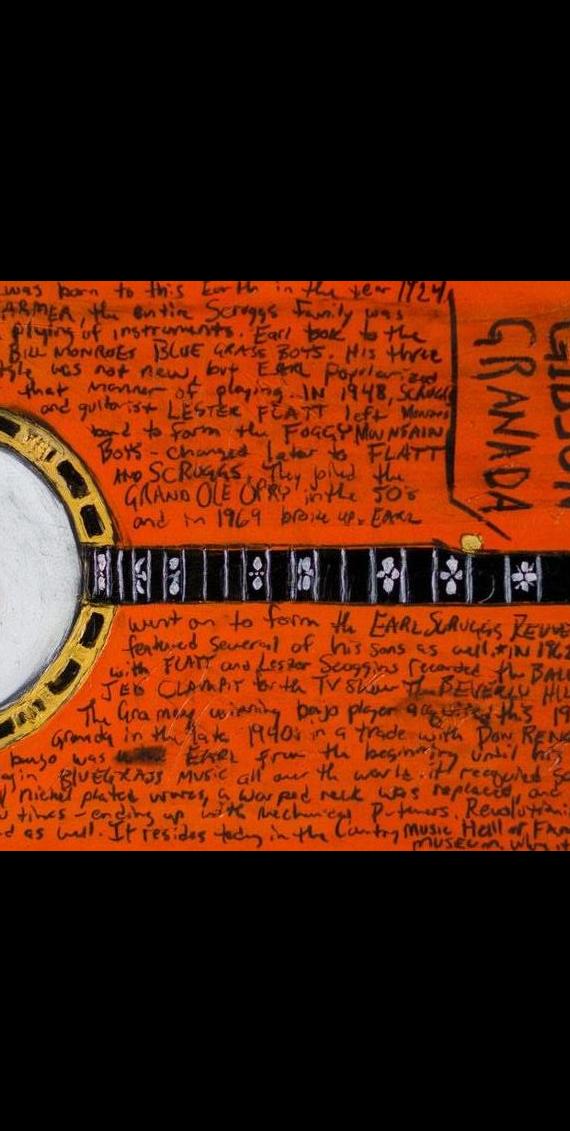 was born to this Earth in the year 1924,
ARMER, the entire Scruggs Family was
playing of instruments. Earl took to the
BILL MONROES BLUE GRASS BOYS. His three
style was not new, but EARL popularized
that manner of playing. IN 1948, SCRUGGS
and guitarist LESTER FLATT left Monroes
band to form the FOGGY MOUNTAIN
BOYS - changed later to FLATT
AND SCRUGGS. They joined the
GRAND OLE OPRY in the 50's
and in 1969 broke up. EARL
GIBSON
GRANADA
went on to form the EARL SCRUGGS REVUE
featured several of his sons as well. IN 1962
with FLATT and Lester Scroggins recorded the BALL
JED CLAMPIT for the TV Show The BEVERLY HIL
The Grammy winning banjo player acquired this 19
granada in the late 1940's in a trade with DON RENO
banjo was EARL from the beginning until his
BLUEGRASS MUSIC all over the world. it required
nickel plated a warped neck was replaced, and
times - ending up with mechanical
as well. It resides today in the Country MUSIC Hall of FAM
MUSEUM. why it